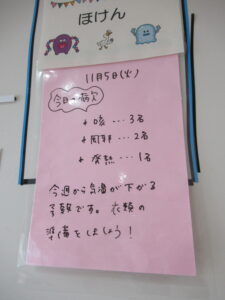 ほけん
11月5日(火)
今日の病欠
咳…3名
関節…2名
発熱…1名
今週から気温が下がる
予報です。衣類の
準備をしましょう!